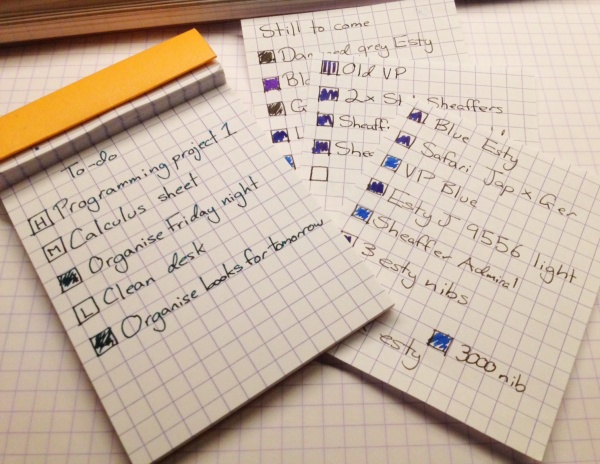 To-do
H Programming project 1
M Calculus sheet
Organise Friday night
L Clean desk
Organise books for tomorrow
Still to come
grey Esty
Old VP
2x Sheaffers
Blue Esty
Safari Jap x Ger
VP Blue
Esty J 9556 light
Sheaffer Admiral
3 esty nibs
esty
3000 nib